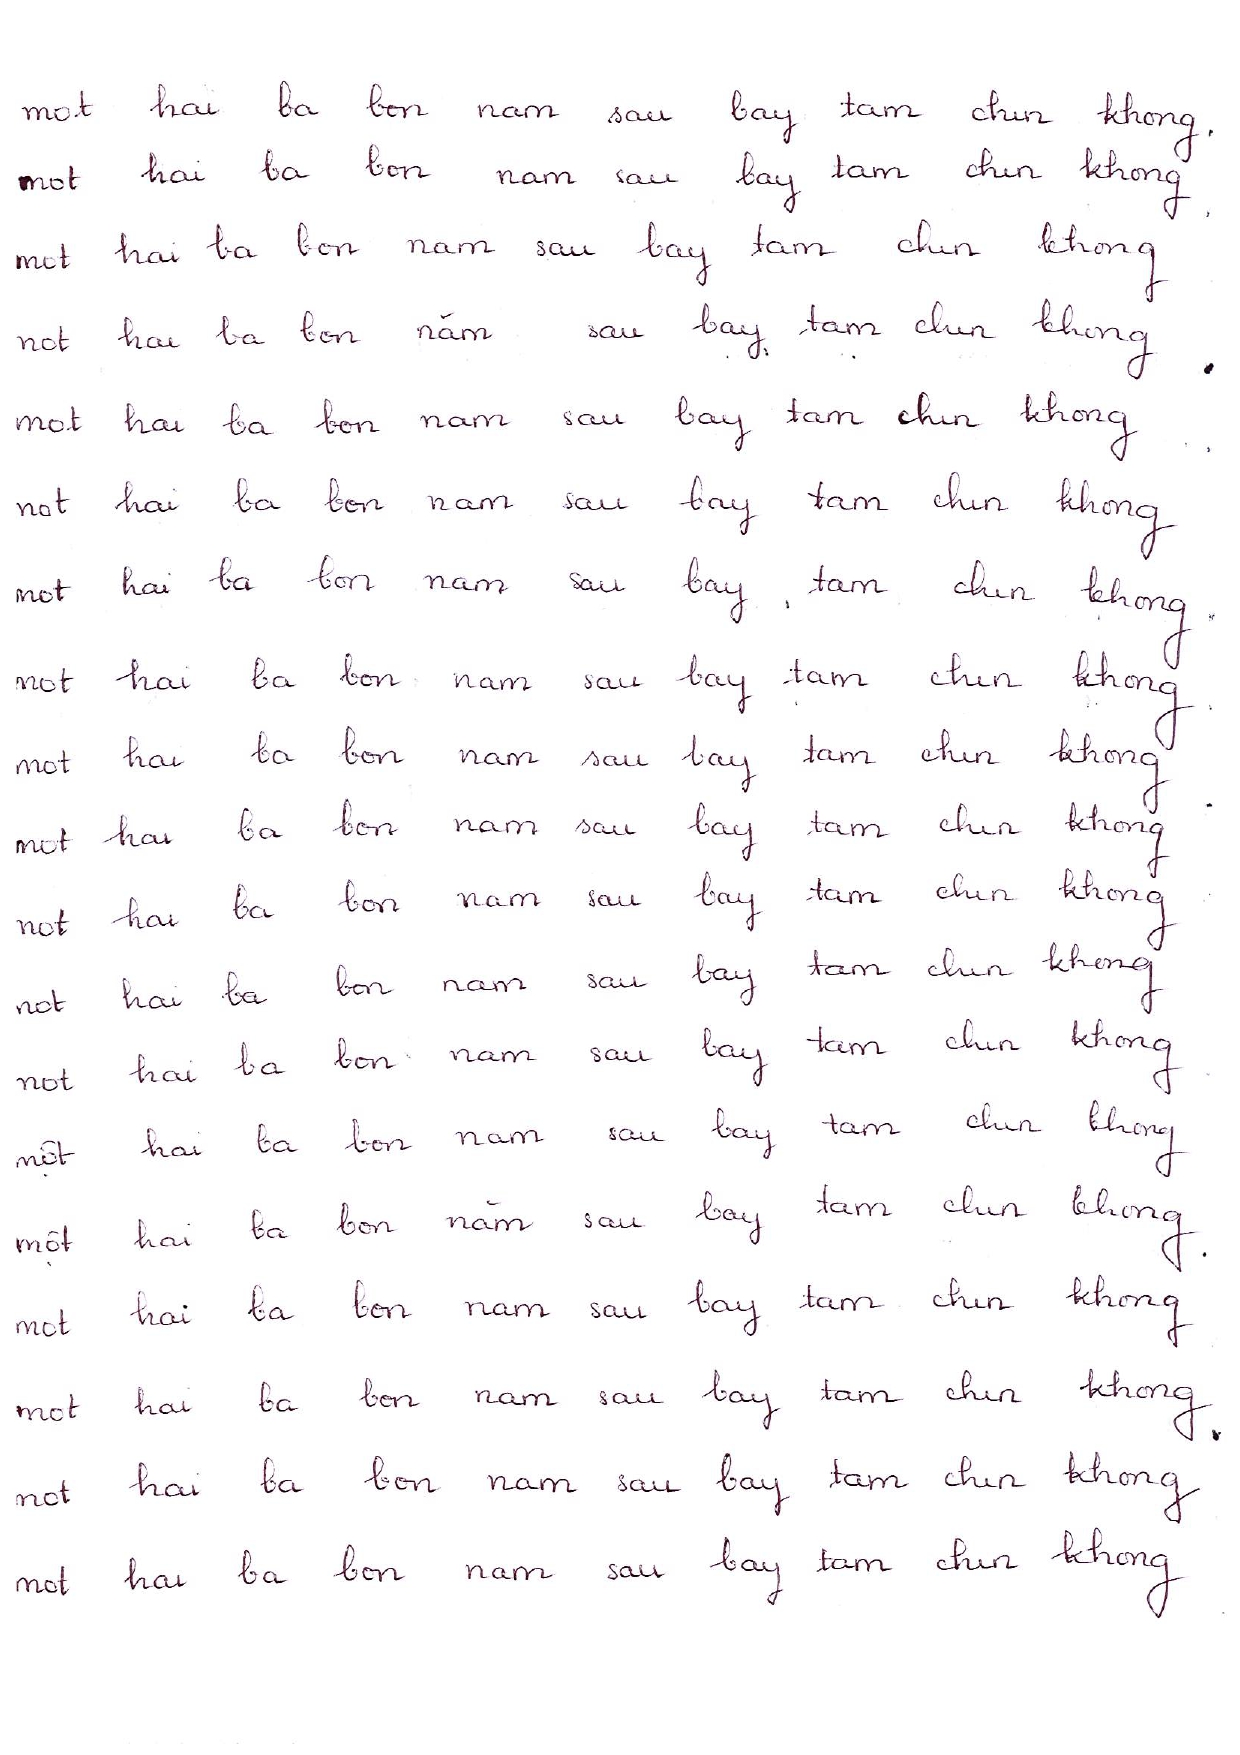 mot hai ba bon nam sau bay tam chin khong.
mot hai ba bon nam sau bay tam chin khong
mot hai ba bon nam sau bay tam chin khong
not hai ba bon năm sau bay tam chin khong
mot hai ba bon nam sau bay tam chin khong
not hai ba bon nam sau bay tam chin khong
mot hai ba bon nam sau bay tam chin khong
not hai ba bon nam sau bay tam chin khong
mot hai ba bon nam sau bay tam chin khong
mot hai ba bon nam sau bay tam chin khong
not hai ba bon nam sau bay tam chin khong
not hai ba bon nam sau bay tam chin khong
not hai ba bon nam sau bay tam chin khong
một hai ba bon nam sau bay tam chin khong
một hai ba bon năm sau bay tam chin khong.
mot hai ba bon nam sau bay tam chin khong
mot hai ba bon nam sau bay tam chin khong
not hai ba bon nam sau bay tam chin khong
mot hai ba bon nam sau bay tam chin khong